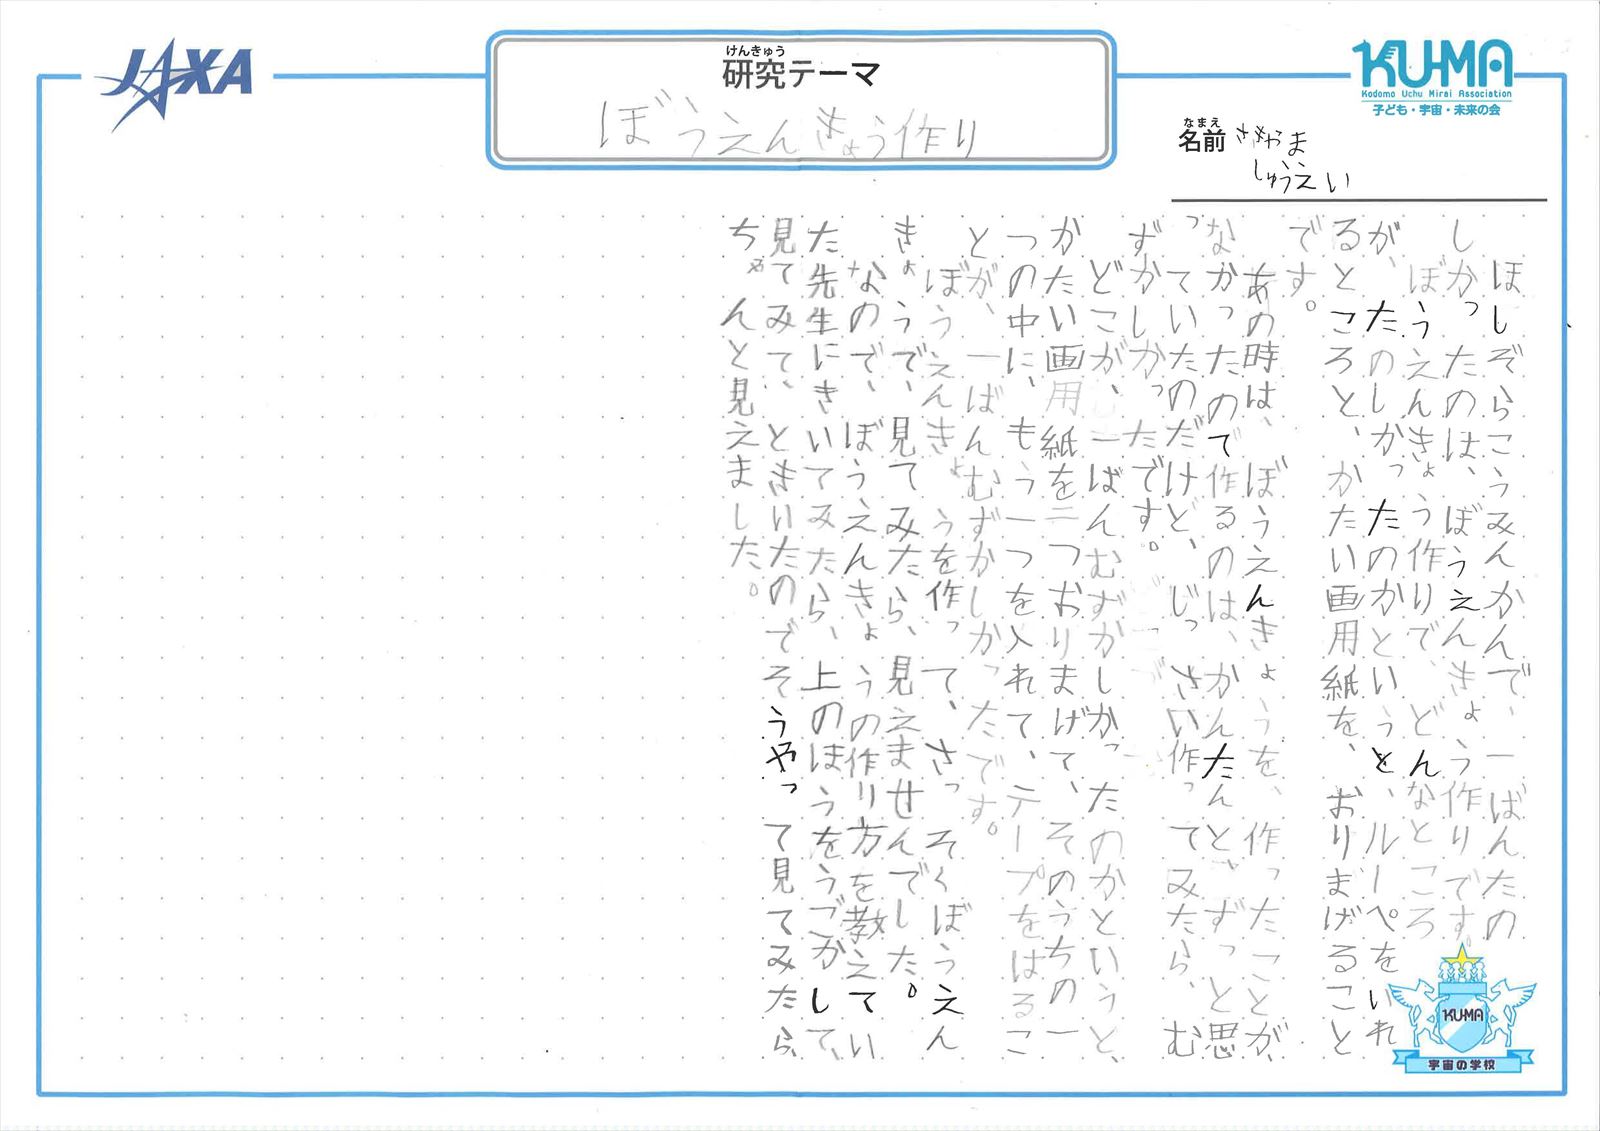 JAXA
けんきゅう
研究テーマ
ぼうえんきょう作り
KU-MA
Kodomo Uchu Mirai Association
子ども・宇宙・未来の会
なまえ
名前 ささやま
しゅうえい
ほしぞらこうみんかんで、一ばんたの
しかったのは、ぼうえんきょう作りです。
ぼうえんきょう作りで、どんなところ
が、たのしかったのかというと、ルーペをいれ
るところと、かたい画用紙を、おりまげること
です。
あの時は、ぼうえんきょうを、作ったことが、
なかったので作るのは、かんたんとずっと思
っていたのだけど、じっさい作ってみたら、む
ずかしかったです。
どこが、一ばんむずがしかったのかというと、
かたい画用紙を二つおりまげて、そのうちの一
つの中に、もう一つを入れて、テープをはるこ
とが、一ばんむずかしかったです。
ぼうえんきょうを作って、さっそくぼうえん
きょうで、見てみたら、見えませんでした。
なので、ぼうえんきょうの作り方を教えてい
た先生にきいてみたら、上のほうをうごかして、
見てみて、ときいたのでそうやって見てみたら、
ちゃんと見えました。
KUMA
宇宙の学校